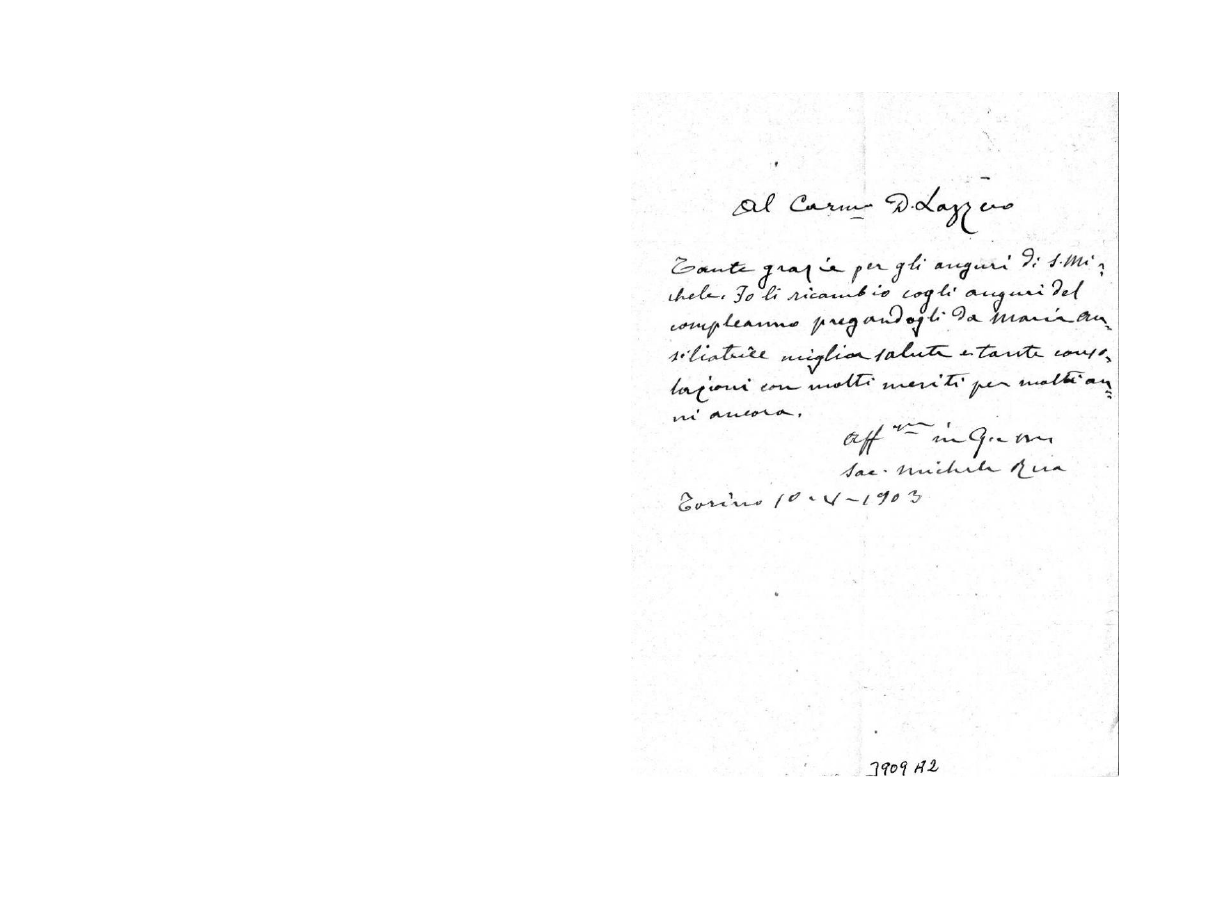 Al Carmo D. Lazzero
Tante grazie per gli auguri di S. Mi-
chele. Io li ricambio cogli auguri del
compleanno pregandogli da Maria Au-
siliatrice miglior salute e tante conso-
lazioni con molti meriti per molti an=
ni ancora.
Aff.mo in G. e M.
Sac. Michele Rua
Torino 10-V-1903
3909 A2